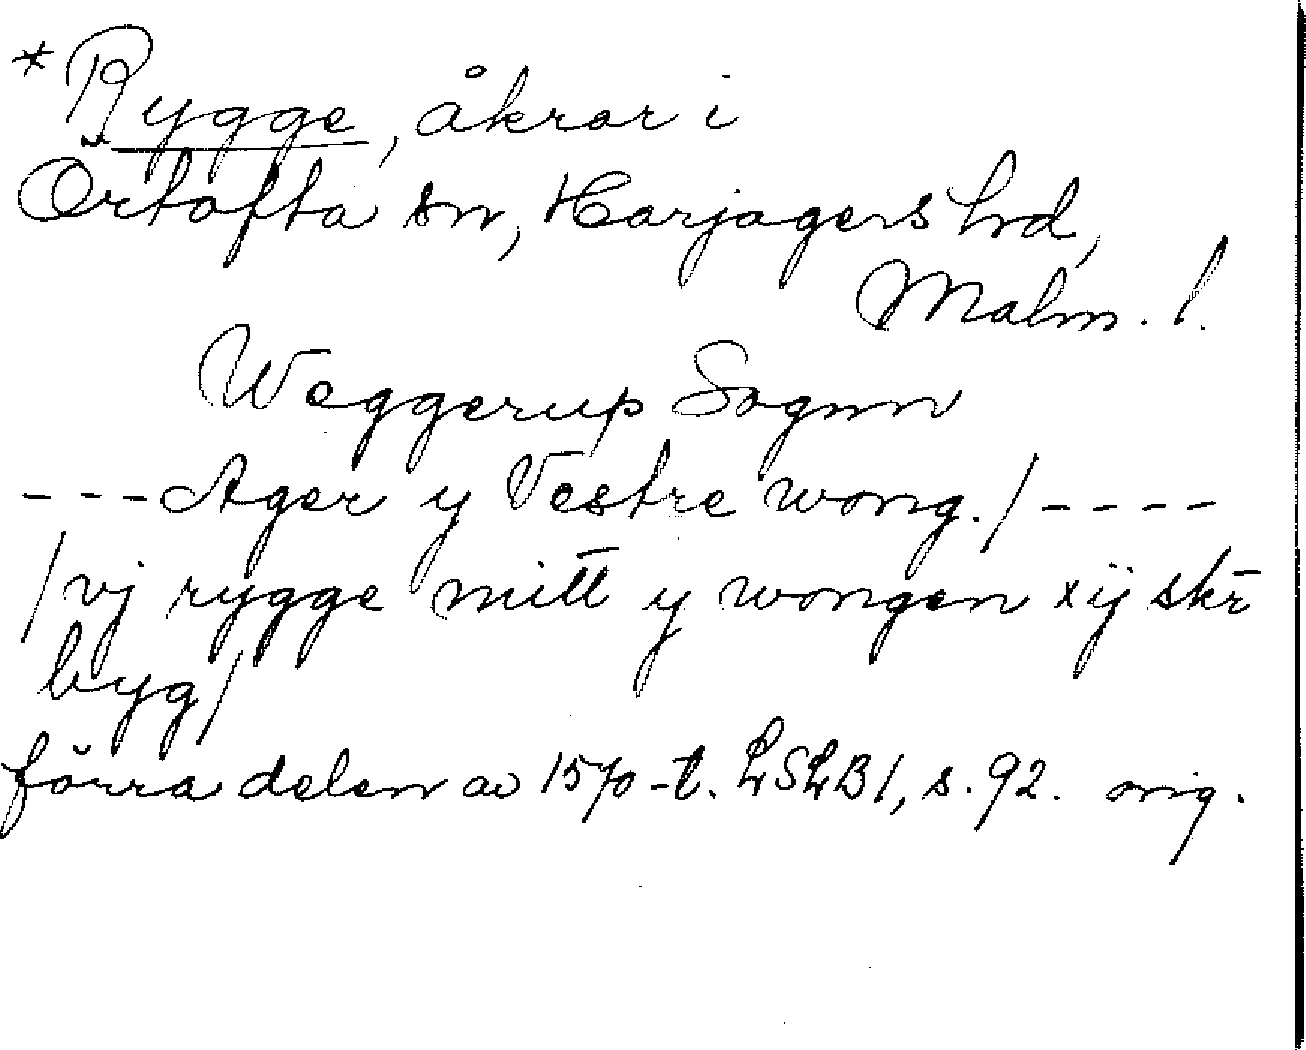 *Rygge, åkrar i
Örtofta sn, Harjagers hd,
Malm. l.
Weggerup Sognn
--- Ager y Vestre wong./ ----
/vj rygge mitt y wongen xij skr
byg/
förra delen av 1570-t. LSLB 1, s. 92. orig.